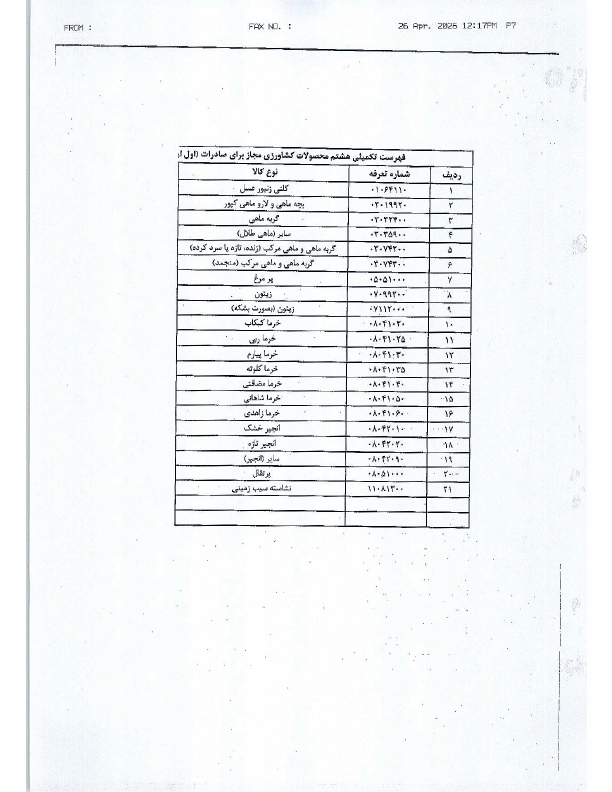 FROM : FAX NO. : 26 Apr. 2026 12:17PM P7
فهرست تکمیلی هشتم محصولات کشاورزی مجاز برای صادرات (اول
ردیف شماره تعرفه نوع کالا
۱ ۰۱۰۶۴۱۱۰ کلنی زنبور عسل
۲ ۰۳۰۱۹۹۲۰ بچه ماهی و لارو ماهی کپور
۳ ۰۳۰۳۲۴۰۰ گربه ماهی
۴ ۰۳۰۳۵۹۰۰ سایر (ماهی طلال)
۵ ۰۳۰۷۴۲۰۰ گربه ماهی و ماهی مرکب (زنده، تازه یا سرد کرده)
۶ ۰۳۰۷۴۳۰۰ گربه ماهی و ماهی مرکب (منجمد)
۷ ۰۵۰۵۱۰۰۰ پر مرغ
۸ ۰۷۰۹۹۲۰۰ زیتون
۹ ۰۷۱۱۲۰۰۰ زیتون (بصورت بشکه)
۱۰ ۰۸۰۴۱۰۲۰ خرما کبکاب
۱۱ ۰۸۰۴۱۰۲۵ خرما ربی
۱۲ ۰۸۰۴۱۰۳۰ خرما پیارم
۱۳ ۰۸۰۴۱۰۳۵ خرما کلوته
۱۴ ۰۸۰۴۱۰۴۰ خرما مضافتی
۱۵ ۰۸۰۴۱۰۵۰ خرما شاهانی
۱۶ ۰۸۰۴۱۰۶۰ خرما زاهدی
۱۷ ۰۸۰۴۲۰۱۰ انجیر خشک
۱۸ ۰۸۰۴۲۰۲۰ انجیر تازه
۱۹ ۰۸۰۴۲۰۹۰ سایر (انجیر)
۲۰ ۰۸۰۵۱۰۰۰ پرتقال
۲۱ ۱۱۰۸۱۳۰۰ نشاسته سیب زمینی